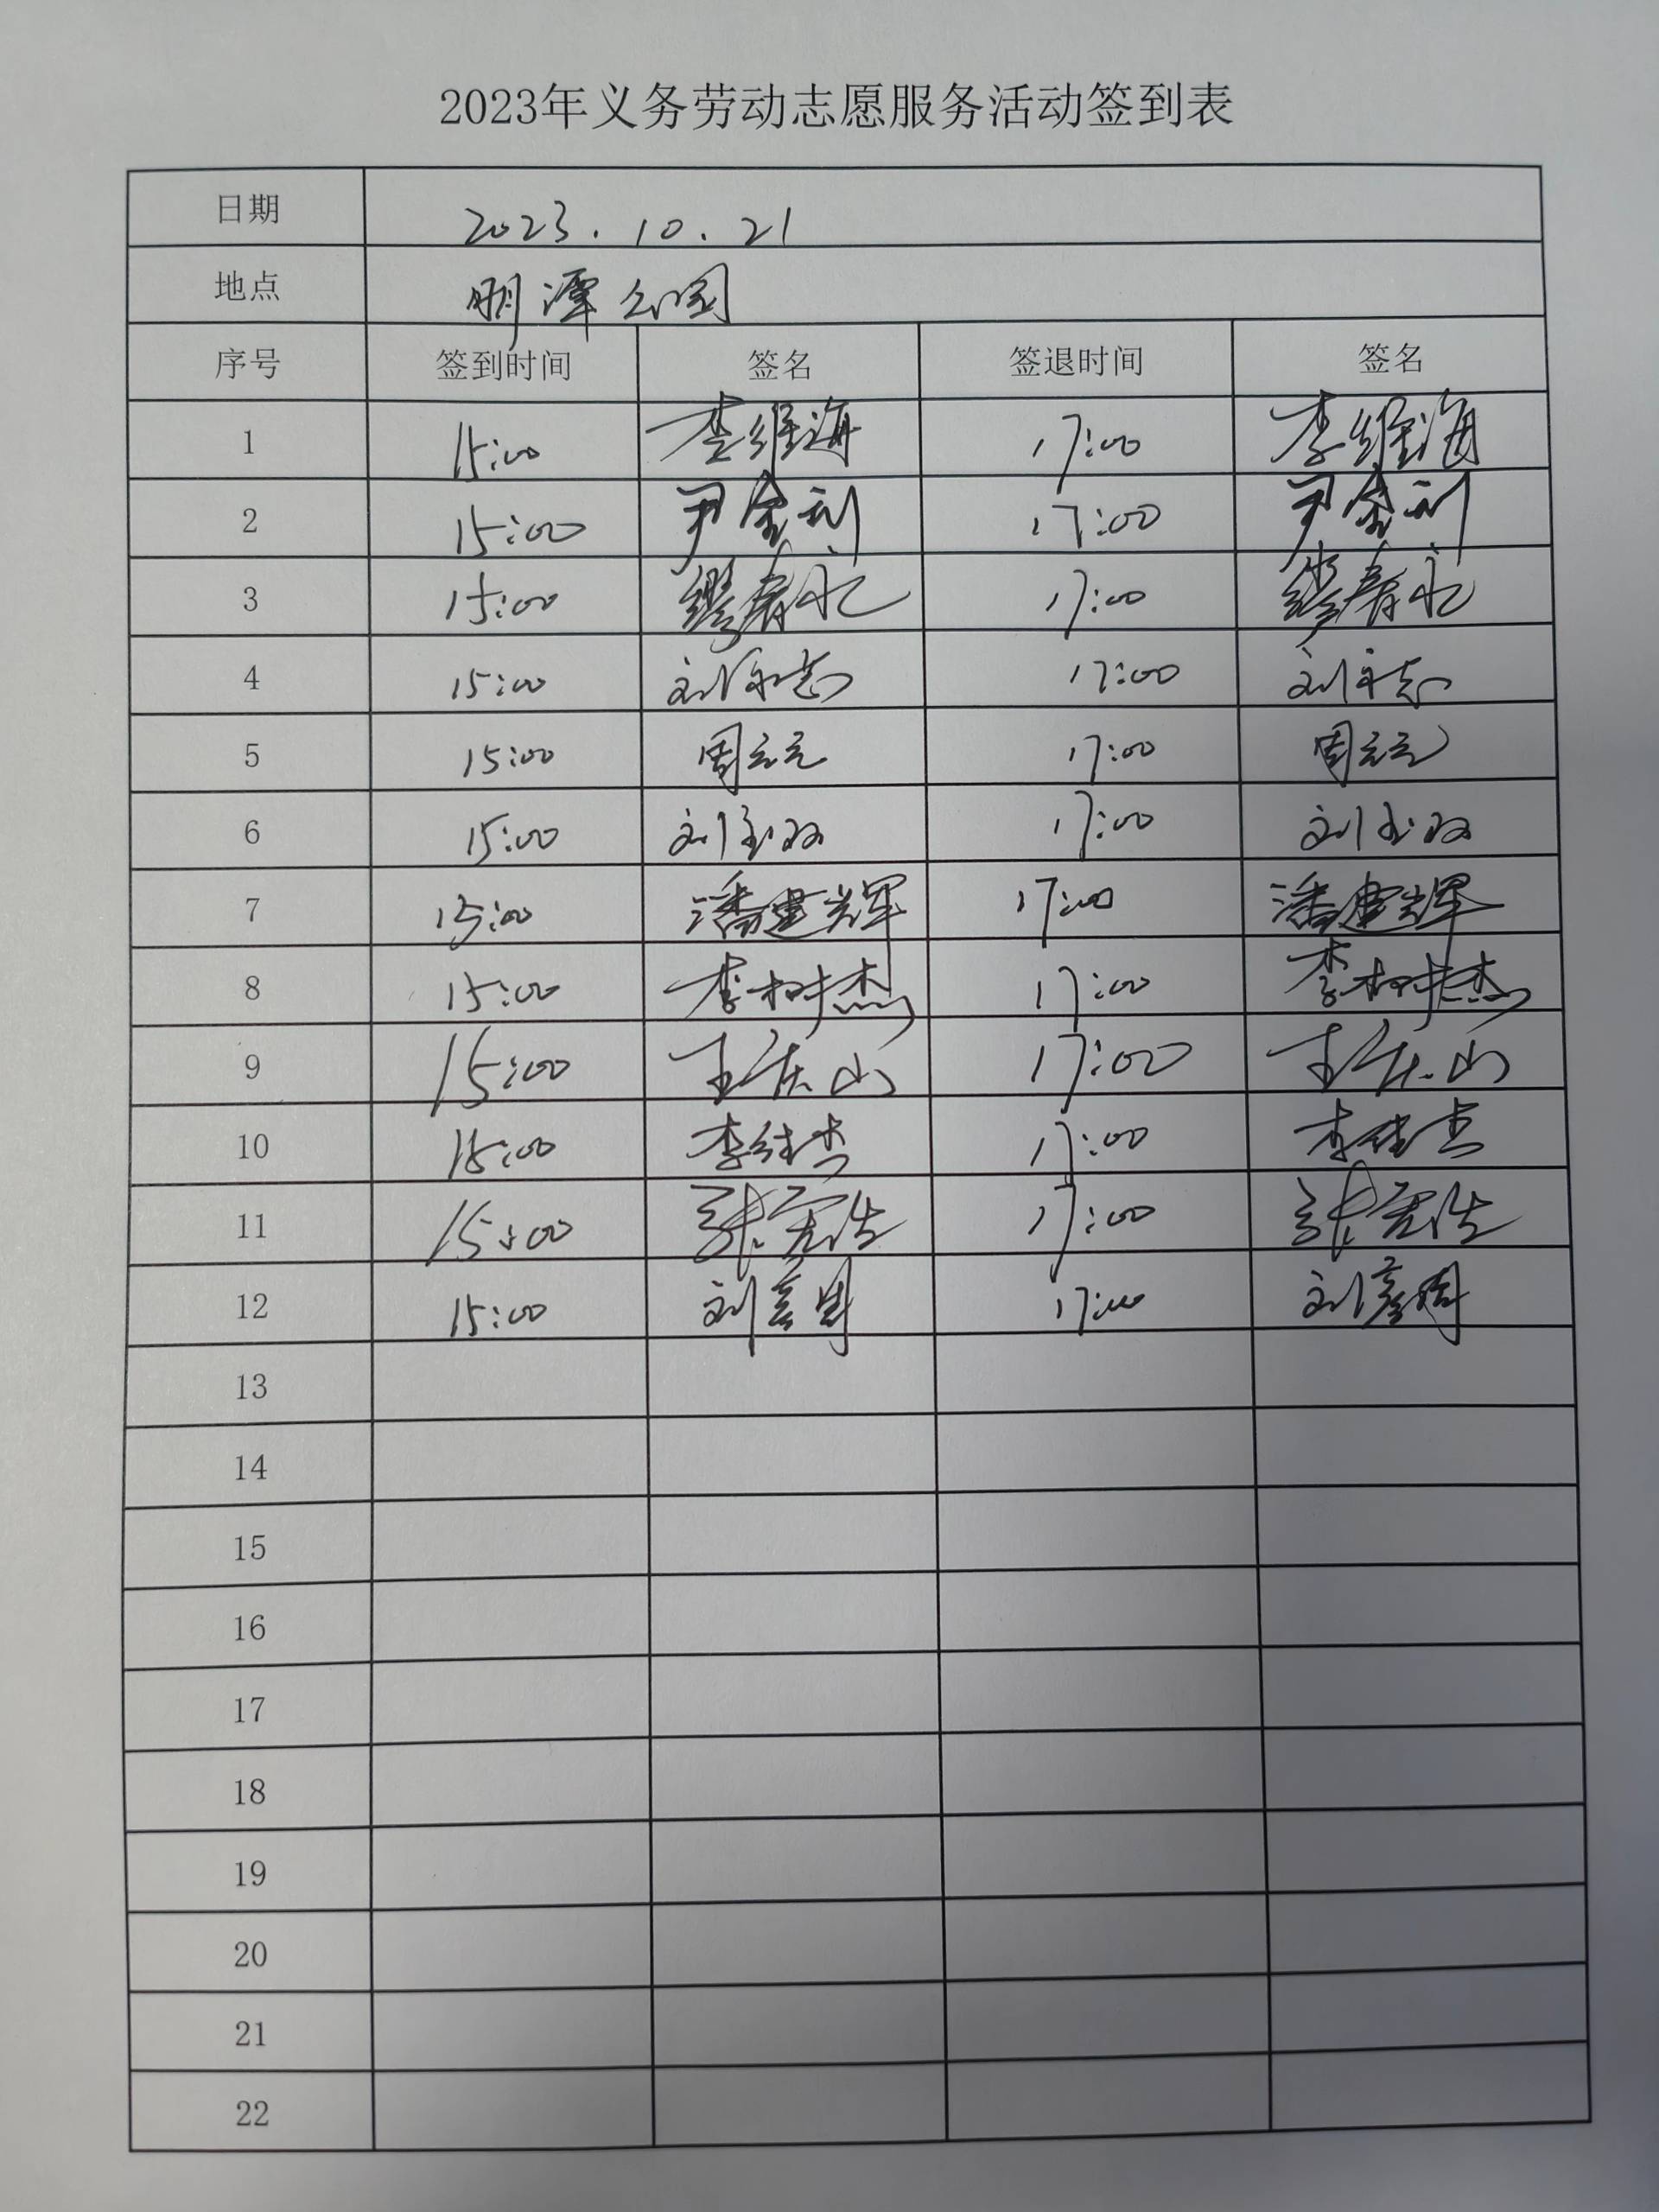 2023年义务劳动志愿服务活动签到表
日期 2023.10.21
地点 明潭公园
序号 签到时间 签名 签退时间 签名
1 15:00 李维海 17:00 李维海
2 15:00 尹金利 17:00 尹金利
3 15:00 缪春永 17:00 缪春永
4 15:00 刘永志 17:00 刘永志
5 15:00 周元元 17:00 周元元
6 15:00 刘玉双 17:00 刘玉双
7 15:00 潘建辉 17:00 潘建辉
8 15:00 李树杰 17:00 李树杰
9 15:00 王庆山 17:00 王庆山
10 15:00 李佳杰 17:00 李佳杰
11 15:00 张宏浩 17:00 张宏浩
12 15:00 刘彦周 17:00 刘彦周
13
14
15
16
17
18
19
20
21
22